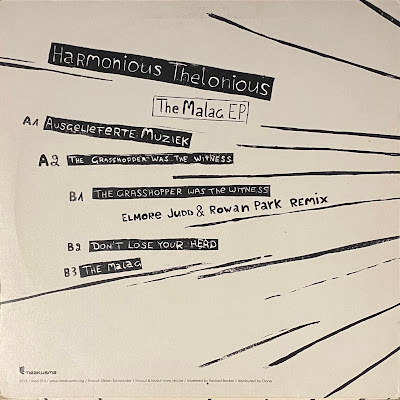 Harmonious Thelonious
The Malag EP
A1 Ausgelieferte Muziek
A2 The Grasshopper was the Witness
B1 The Grasshopper was the Witness
Elmore Judd & Rowan Park Remix
B2 Don't Lose Your Head
B3 The Malag
meakusma